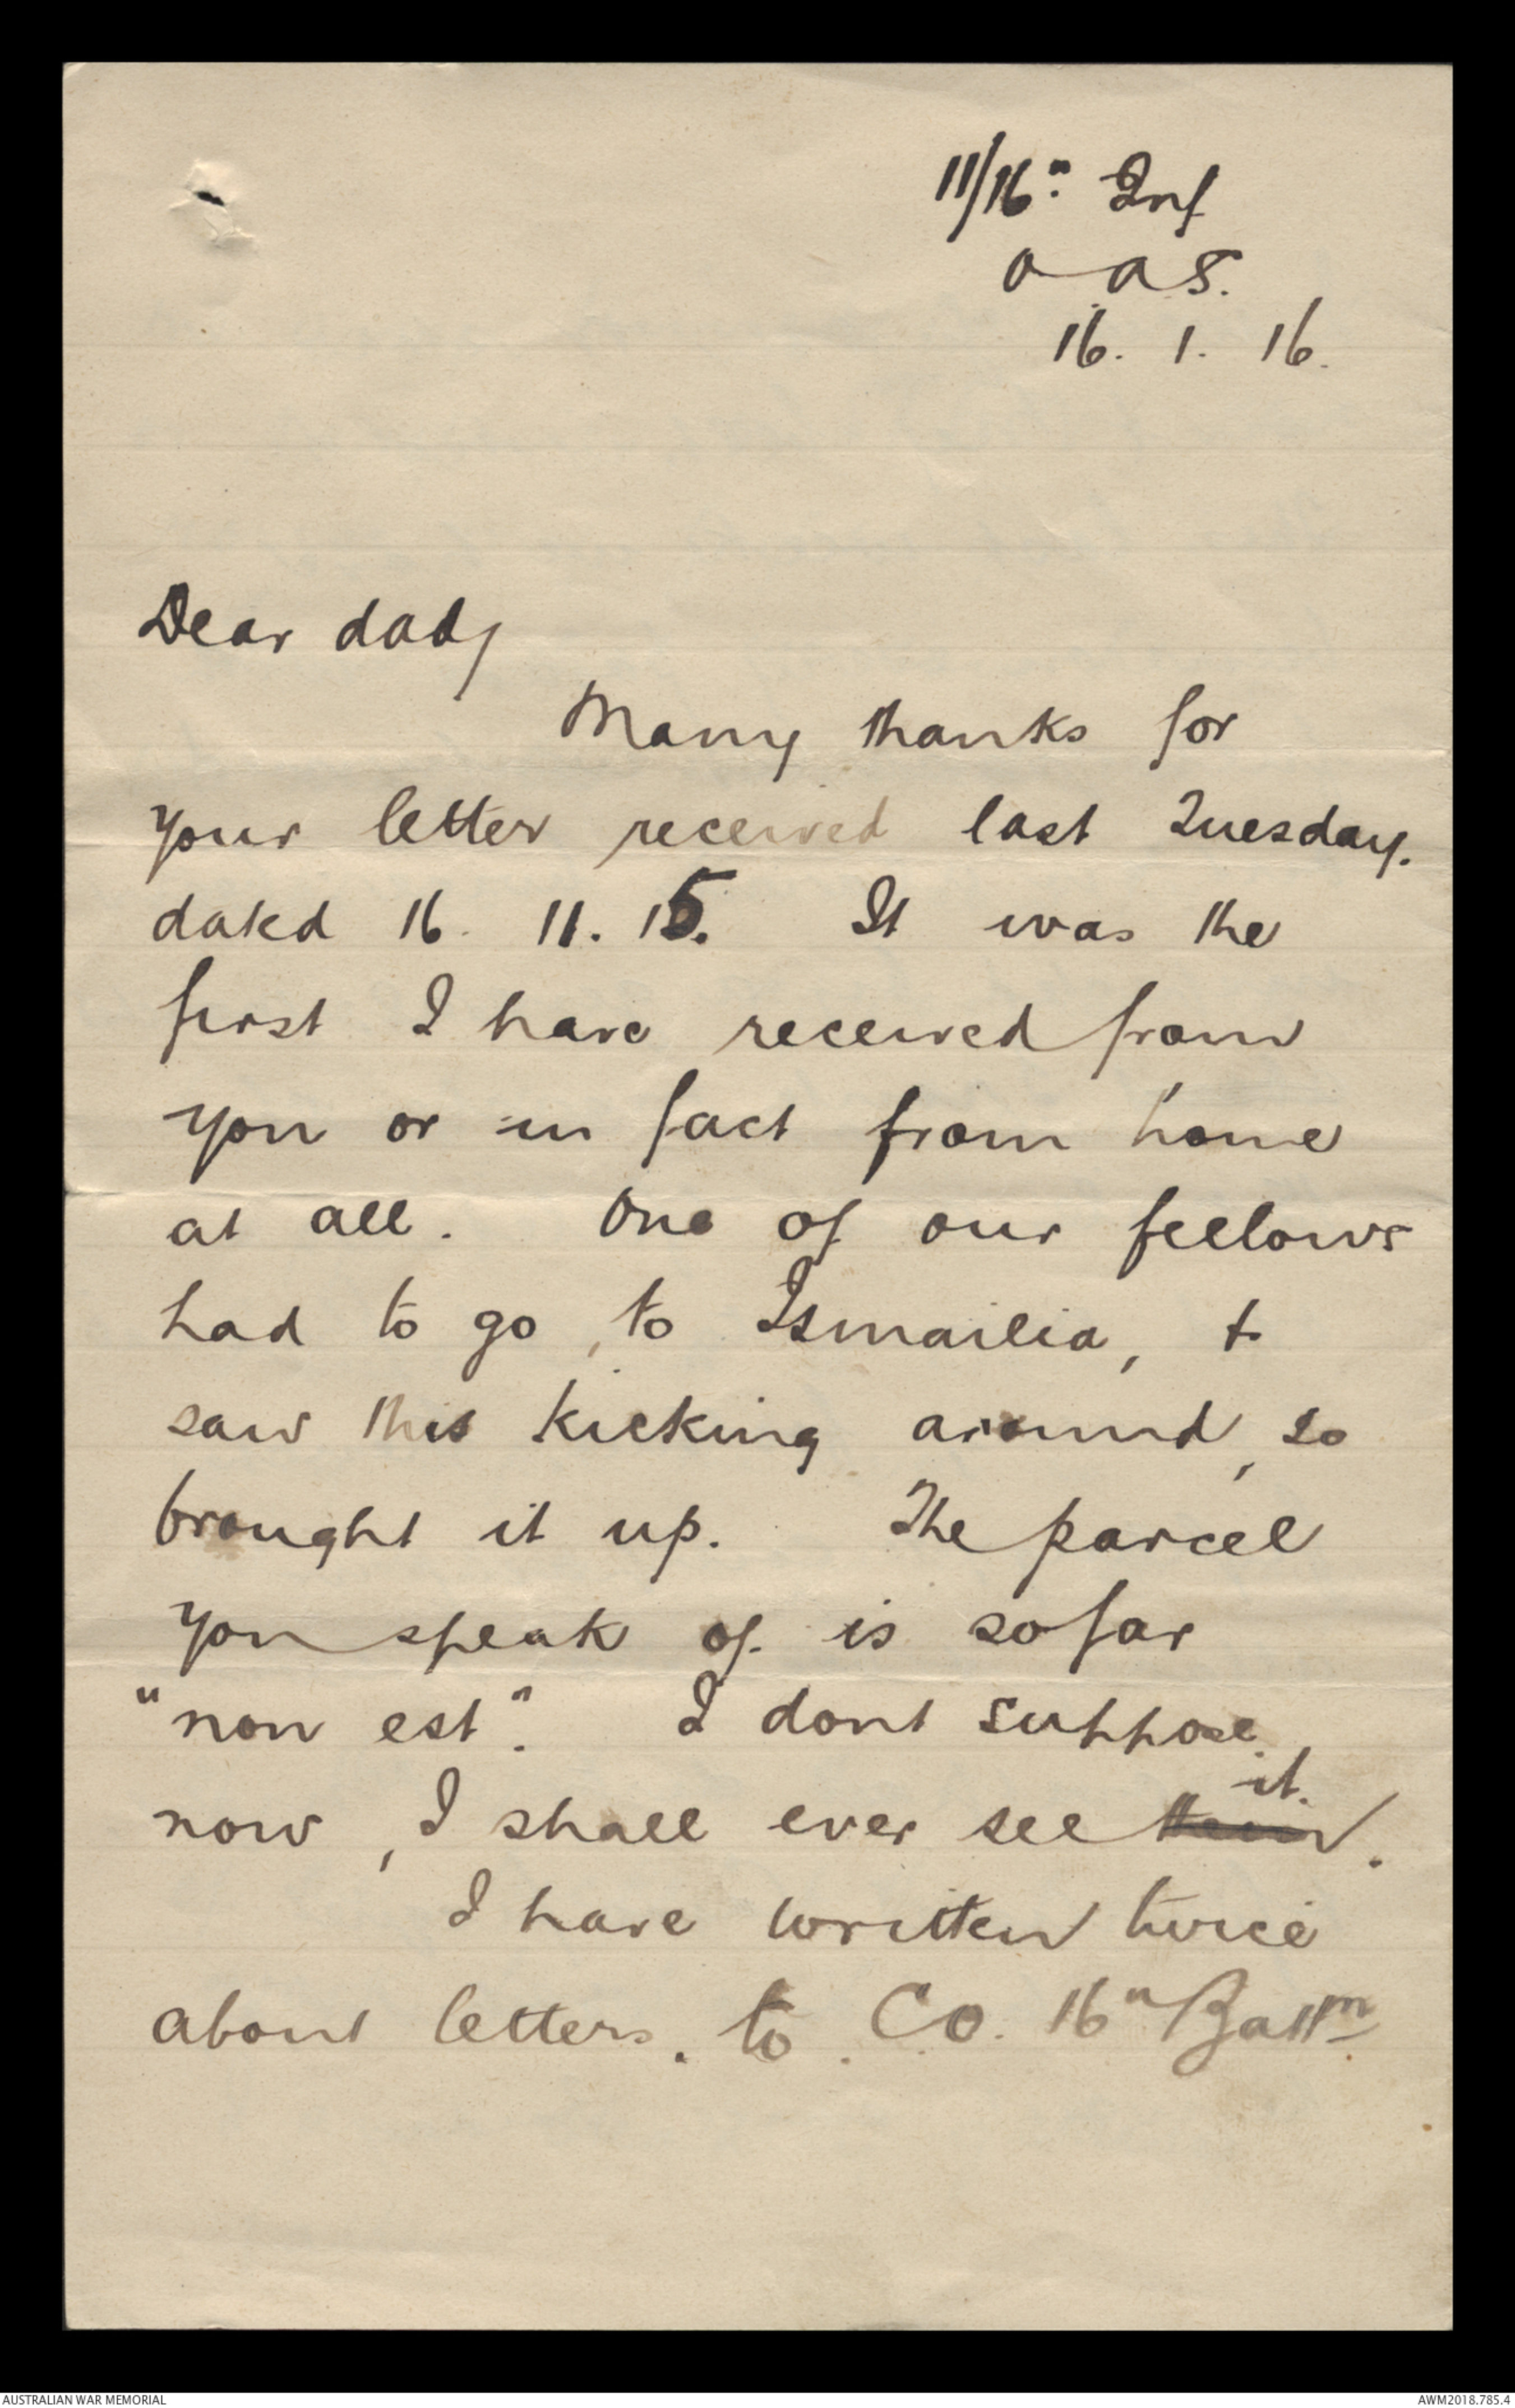 11/16" Inf
O A S.
16. 1. 16.
Dear dad,
Many thanks for
your letter received last Tuesday.
dated 16. 11. 15. It was the
first I have received from
you or in fact from home
at all. One of our fellows
had to go, to Ismailia, &
saw this kicking around, so
brought it up. The parcel
you speak of is sofar
"non est". I dont suppose
now, I shall ever see them it.
I have written twice
about letters. to CO. 16" Battn
AUSTRALIAN WAR MEMORIAL
AWM2018.785.4